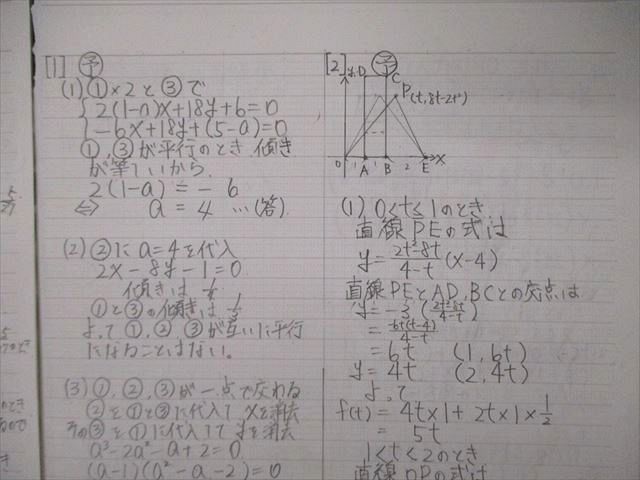 [1] 予
(1) ①×2と③で
{2(1-a)x+18y+6=0
{-6x+18y+(5-a)=0
①,③が平行のとき,傾き
が等しいから,
2(1-a) = -6
⇔ a = 4 …(答).
(2) ②に a=4を代入
2x-8y-1=0
傾きは 1/4
①と③の傾きは 1/3
よって①,②,③が互いに平行
になることはない。
(3) ①,②,③が一点で交わる
②を①と③に代入して xを消去
その③を①に代入して yを消去
a³-2a²-a+2=0
(a-1)(a²-a-2)=0
[2] 予
y D C
P(t, 8t-2t²)
0 1 A 1 B 2 E x
(1) 0<t≤1のとき
直線PEの式は
y = 2t²-8t/4-t (x-4)
直線PEとAD,BCとの交点は
y = -3 (2t²-8t/4-t)
= 6t(t-4)/4-t
= 6t (1, 6t)
y = 4t (2, 4t)
よって
f(t) = 4t×1+2t×1×1/2
= 5t
1<t<2のとき
直線OPの式は